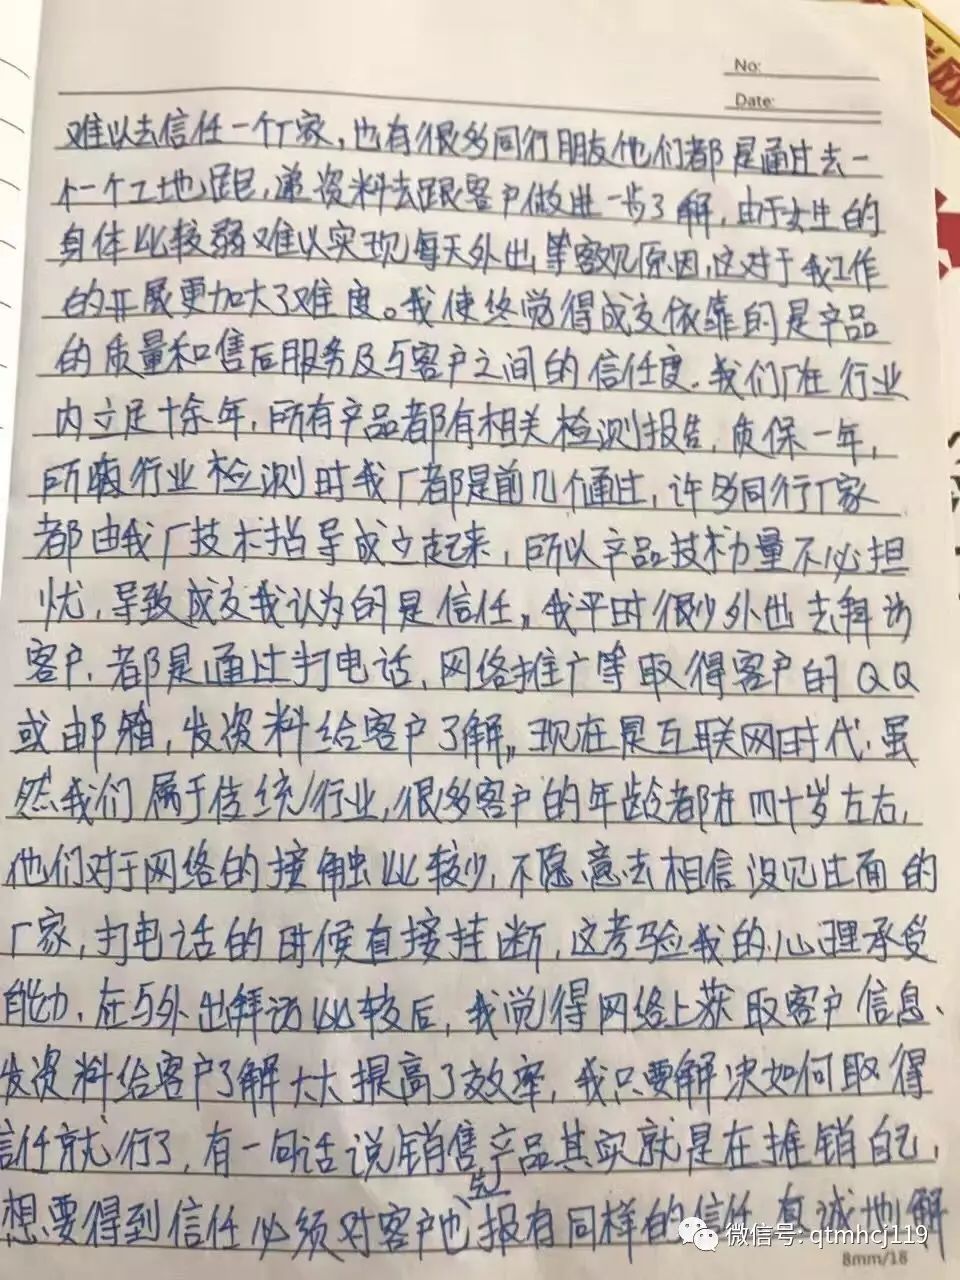 No:
Date:
难以去信任一个厂家，也有很多同行朋友他们都是通过去一
个一个工地跑，递资料去跟客户做进一步了解，由于女生的
身体比较弱难以实现每天外出等客观原因，这对于我工作
的开展更加大了难度。我使终觉得成交依靠的是产品
的质量和售后服务及与客户之间的信任度。我们厂在行业
内立足十余年，所有产品都有相关检测报告，质保一年，
所有行业检测时我厂都是前几个通过，许多同行厂家
都由我厂技术指导成立起来，所以产品技术力量不必担
忧，导致成交我认为的是信任。我平时很少外出去拜访
客户，都是通过打电话、网络推广等取得客户的QQ
或邮箱，发资料给客户了解。现在是互联网时代，虽
然我们属于传统行业，很多客户的年龄都在四十岁左右，
他们对于网络的接触比较少，不愿意去相信没见过面的
厂家，打电话的时候直接挂断，这考验我的心理承受
能力，在与外出拜访比较后，我觉得网络上获取客户信息、
发资料给客户了解大大提高了效率，我只要解决如何取得
信任就行了，有一句话说销售产品其实就是在推销自己，
想要得到信任必须对客户也先报有同样的信任，真诚地解
微信号: qtmhcj119
8mm/18